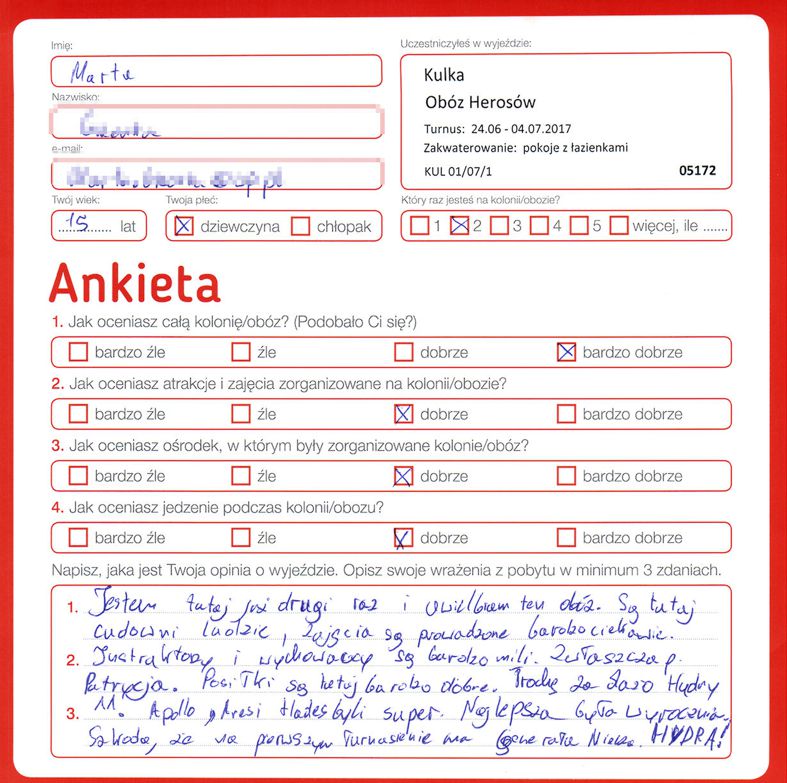 Imię:
Uczestniczyłeś w wyjeździe:
Marta
Kulka
Obóz Herosów
Nazwisko:
Turnus: 24.06 - 04.07.2017
Zakwaterowanie: pokoje z łazienkami
e-mail:
KUL 01/07/1
05172
Twój wiek:
Twoja płeć:
Który raz jesteś na kolonii/obozie?
15 lat
dziewczyna
chłopak
1 2 3 4 5 więcej, ile .......
Ankieta
1. Jak oceniasz całą kolonię/obóz? (Podobało Ci się?)
bardzo źle źle dobrze bardzo dobrze
2. Jak oceniasz atrakcje i zajęcia zorganizowane na kolonii/obozie?
bardzo źle źle dobrze bardzo dobrze
3. Jak oceniasz ośrodek, w którym były zorganizowane kolonie/obóz?
bardzo źle źle dobrze bardzo dobrze
4. Jak oceniasz jedzenie podczas kolonii/obozu?
bardzo źle źle dobrze bardzo dobrze
Napisz, jaka jest Twoja opinia o wyjeździe. Opisz swoje wrażenia z pobytu w minimum 3 zdaniach.
1. Jestem tutaj już drugi raz i uwielbiam ten obóz. Są tutaj
cudowni ludzie, zajęcia są prowadzone bardzo ciekawie.
2. Instruktorzy i wychowawcy są bardzo mili. Zwłaszcza p.
Patrycja. Posiłki są tutaj bardzo dobre. Trochę za dużo Hydry
3. 11. Apollo, Aresi Hades byli super. Najlepsza była wyrocznia.
Szkoda, że na pierwszym turnusie nie ma Generała Nielsa. HYDRA!